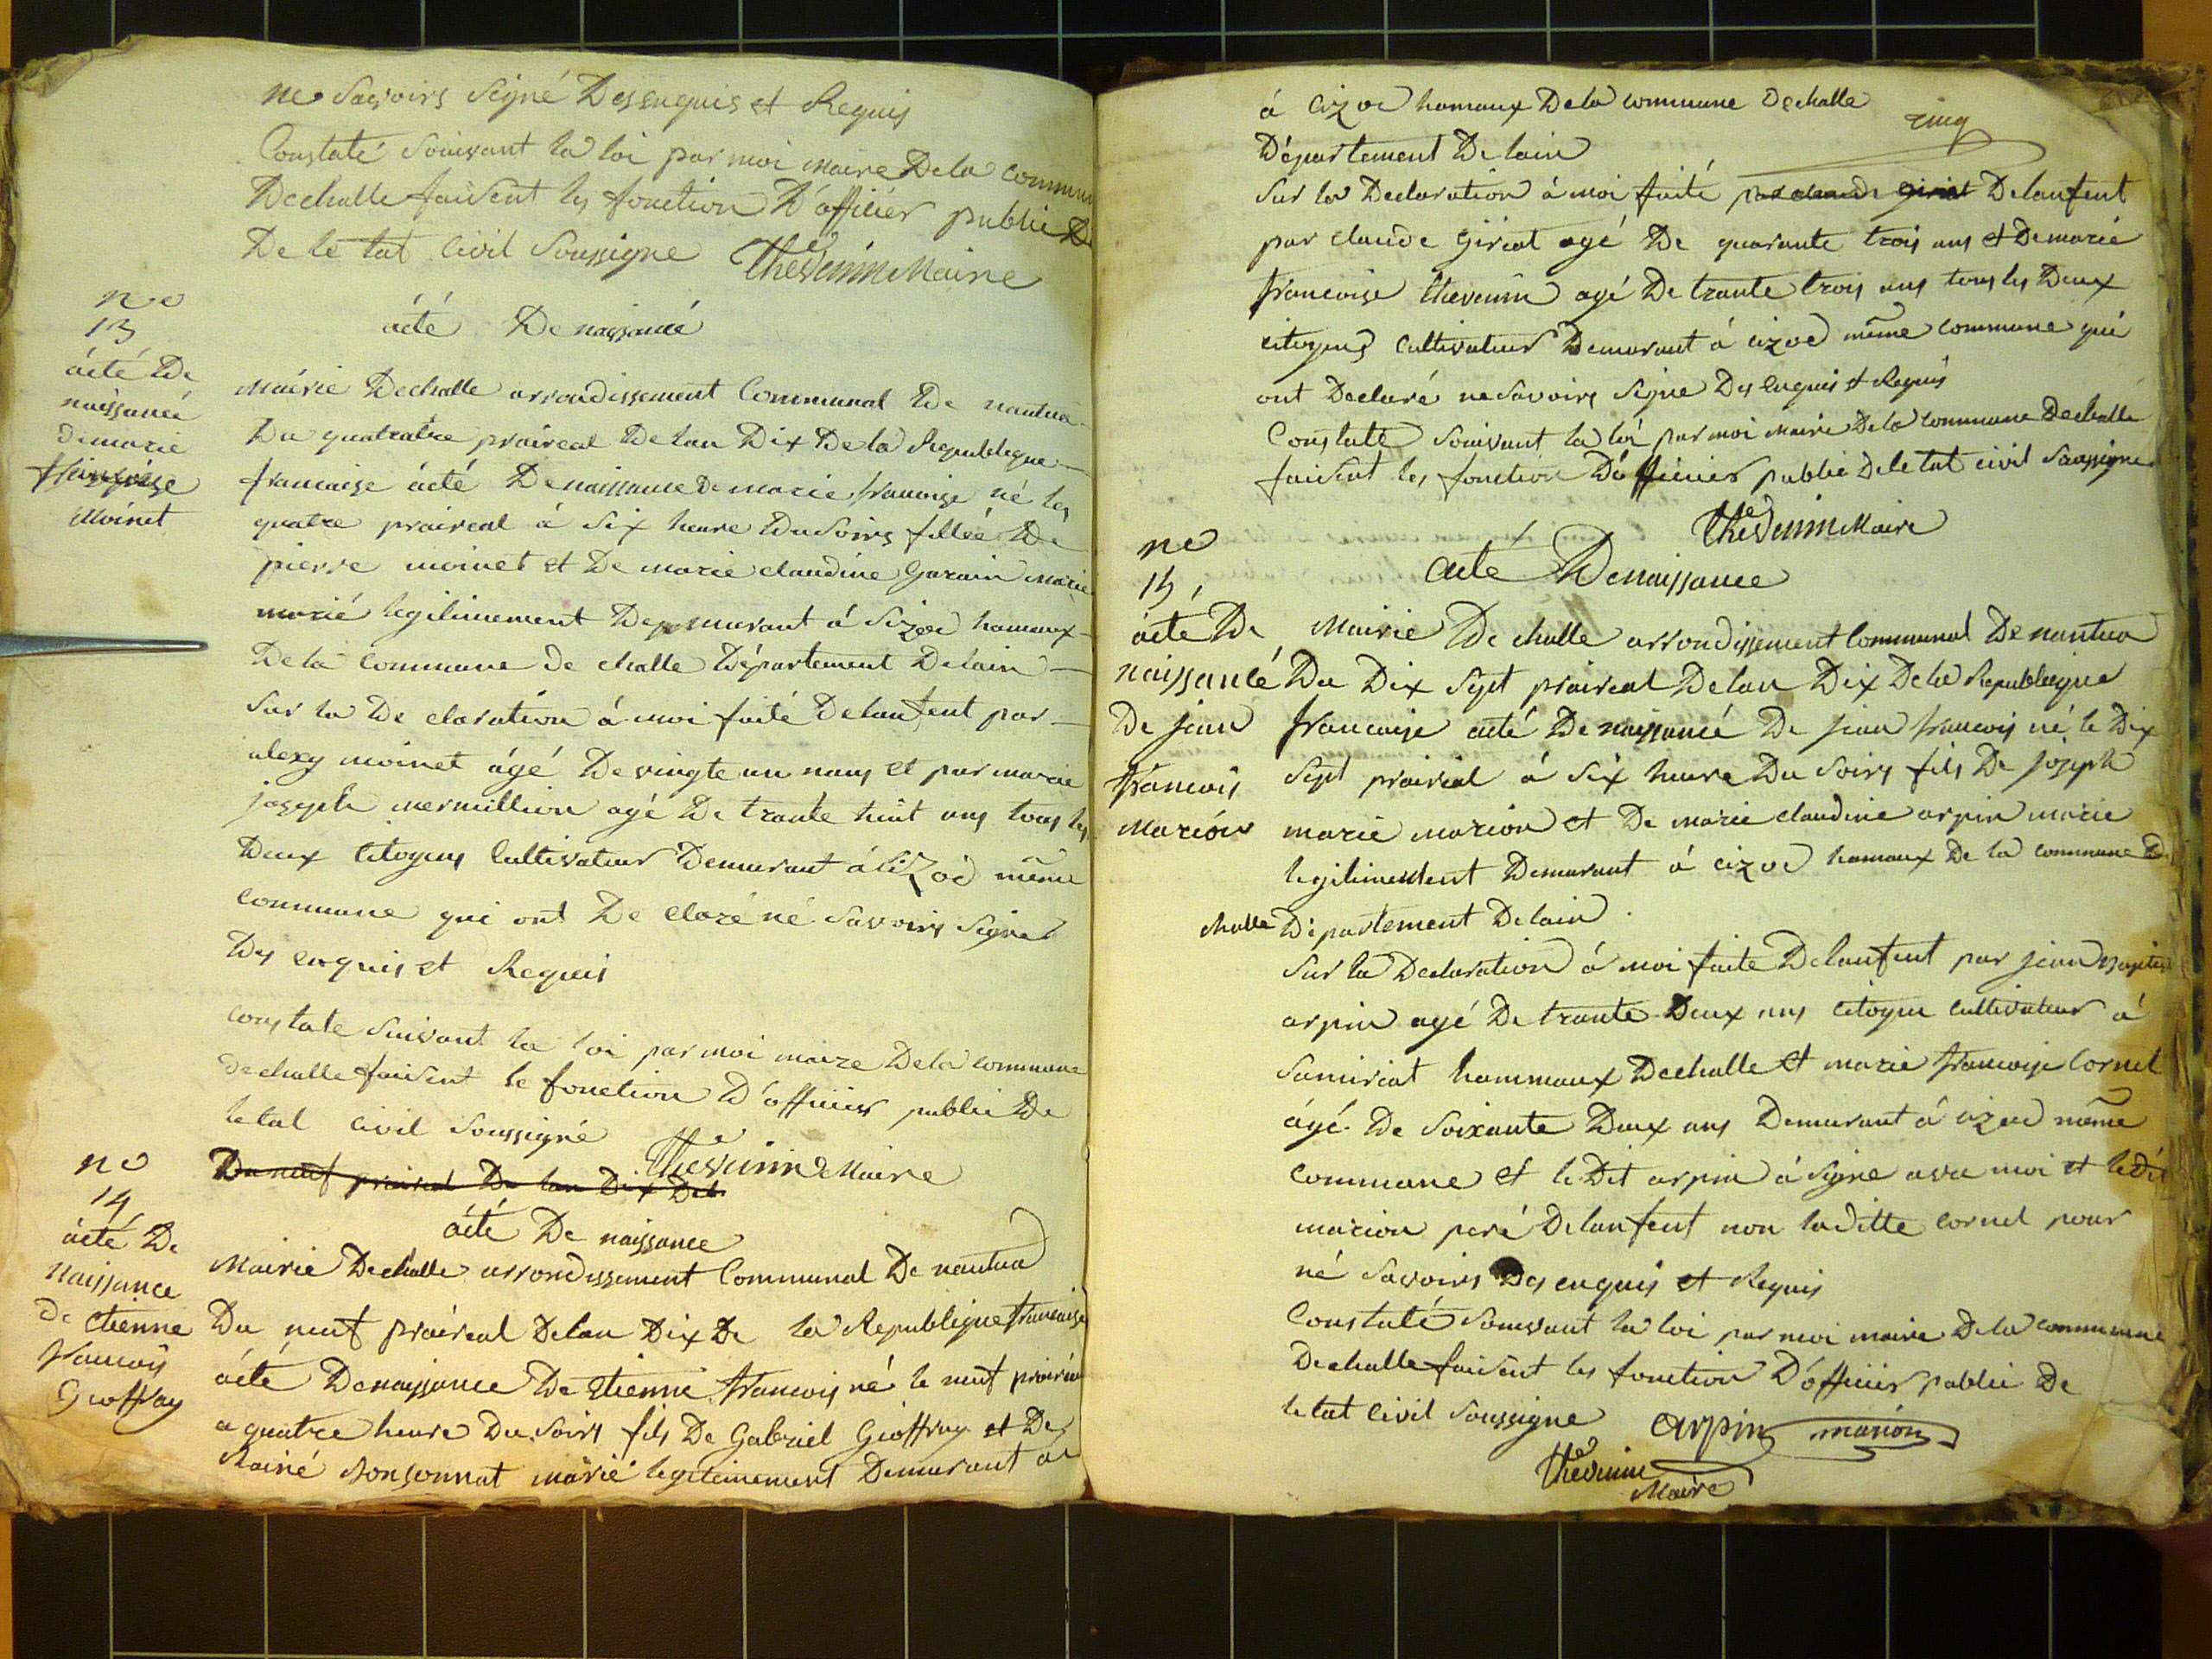 ne Savoirs Signé Des enquis et Requis
Constaté Souivant la loi par moi Maire De la Commun
De challe faisent les fonction D'officier public De
De le tat Civil Soussigne Thevenin Maire
no
13
áté De
naissancé
de marie
francoise
Moinet
áté De naissancé
Mairie De challe arrondissement Communal De nantua
Du quatratre praireal De lan Dix De la Republeque
francaise áté De naissance De marie francoise né les
quatre praireal á Six heure Du Soirs fillée De
pierre moinet et De marie claudine Garain Marie
marié legitimement Demurant á Sizod hameaux
De la Commune de challe Département De lain
Sur la De claration á moi faité De lanfent par
alexy moinet ágé De vingte un nans et par marie
joseph mermillion agé De trante huit ans tous les
Deux Citoyens Cultivateur Demurant á Cizod même
Commune qui ont De claré né Savoirs Signer
Des enquis et Requis
Constate Suivant la loi par moi maire De la Commune
de challe faisent le fonction D'officier public De
le tat Civil Soussigné Thevenin Maire
Du neuf praireal De lan Dix De la
no
14
áté De
naissance
De etienne
francois
Geoffray
áté De naissance
Mairie De challe arrondissement Communal De nantua
Du neuf praireal De lan Dix De la Republique francaise
áté De naissance De Etienne francois né le neuf praireal
a quatre heure Du Soirs fils De Gabriel Geoffray et De
Marie Monsonnat marié legitimement Demurant a
cinq
á Cizod hameaux De la Commune De challe
Département De lain
Sur la Declaration á moi faité par claude girial De lanfent
par claude Girial agé De quarante trois ans et De marie
francoise thevenin agé De trante trois ans tous les Deux
citoyens Cultivateur Demurant á cizod même commune qui
ont Declaré ne Savoirs Signe Des enquis et Requis
Constate Souivant la loi par moi maire De la Commune De challe
faisent les fonction D'officier public De le tat civil Soussigne
Thevenin Maire
no
15
áté De
naissancé
De jean
francois
Marion
Acté De naissance
Mairie De challe arrondissement Communal De nantua
Du Dix Sept praireal De lan Dix De la Republeque
francaise acté De naissancé De jean francois né le Dix
Sept praireal á Six heure Du Soirs fils De joseph
marie marion et De marie claudine arpin marie
legitimentent Demurant á cizod hameaux De la commune De
challe Département De lain
Sur la Declaration á moi faite De lanfent par jean baptiste
arpin agé De trante Deux ans Citoyen Cultivateur á
Samiriat hammaux De challe et marie francoise Cornel
ágé De Soixante Deux ans Demurant á cizod même
Commune et le Dit arpin á Signe avec moi et le Dit
marion peré De lanfent non laditte cornel pour
né Savoirs Des enquis et Requis
Constaté Souivant la loi par moi maire De la commune
De challe faisent les fonction D'officier public De
le tat Civil Soussigne Arpin marion
Thevenin
Maire